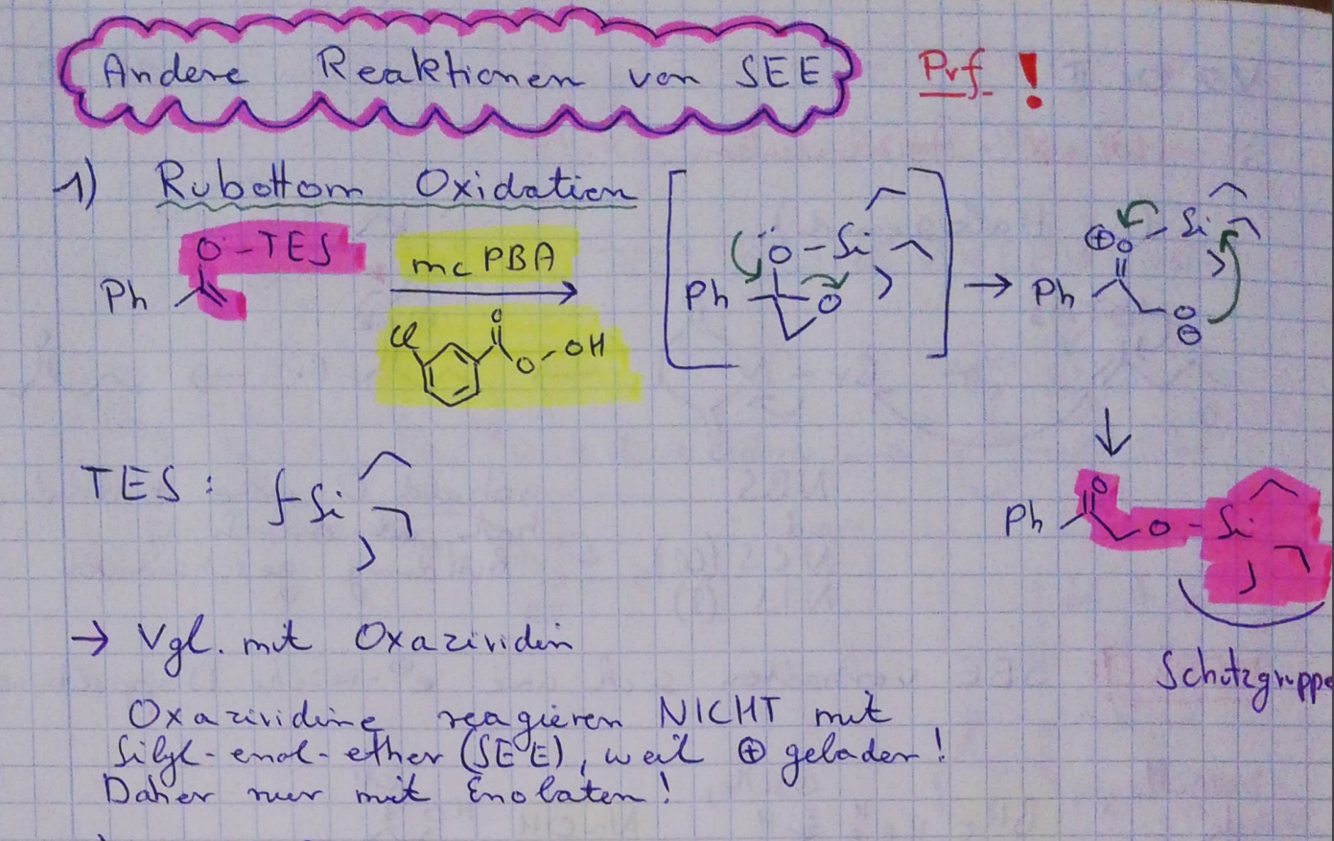 Andere Reaktionen von SEE Prf. !
1) Rubottom Oxidation
O-TES
Ph
mcPBA
Cl O O-OH
Ph O-Si O
Ph ⊕ O-Si O ⊖
TES: Si
Ph O O-Si
→ Vgl. mit Oxaziridin
Schutzgruppe
Oxaziridine reagieren NICHT mit
Silyl-enol-ether (SEE), weil ⊕ geladen!
Daher nur mit Enolaten!